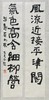 風流近接平津閣
氣色高含細柳營